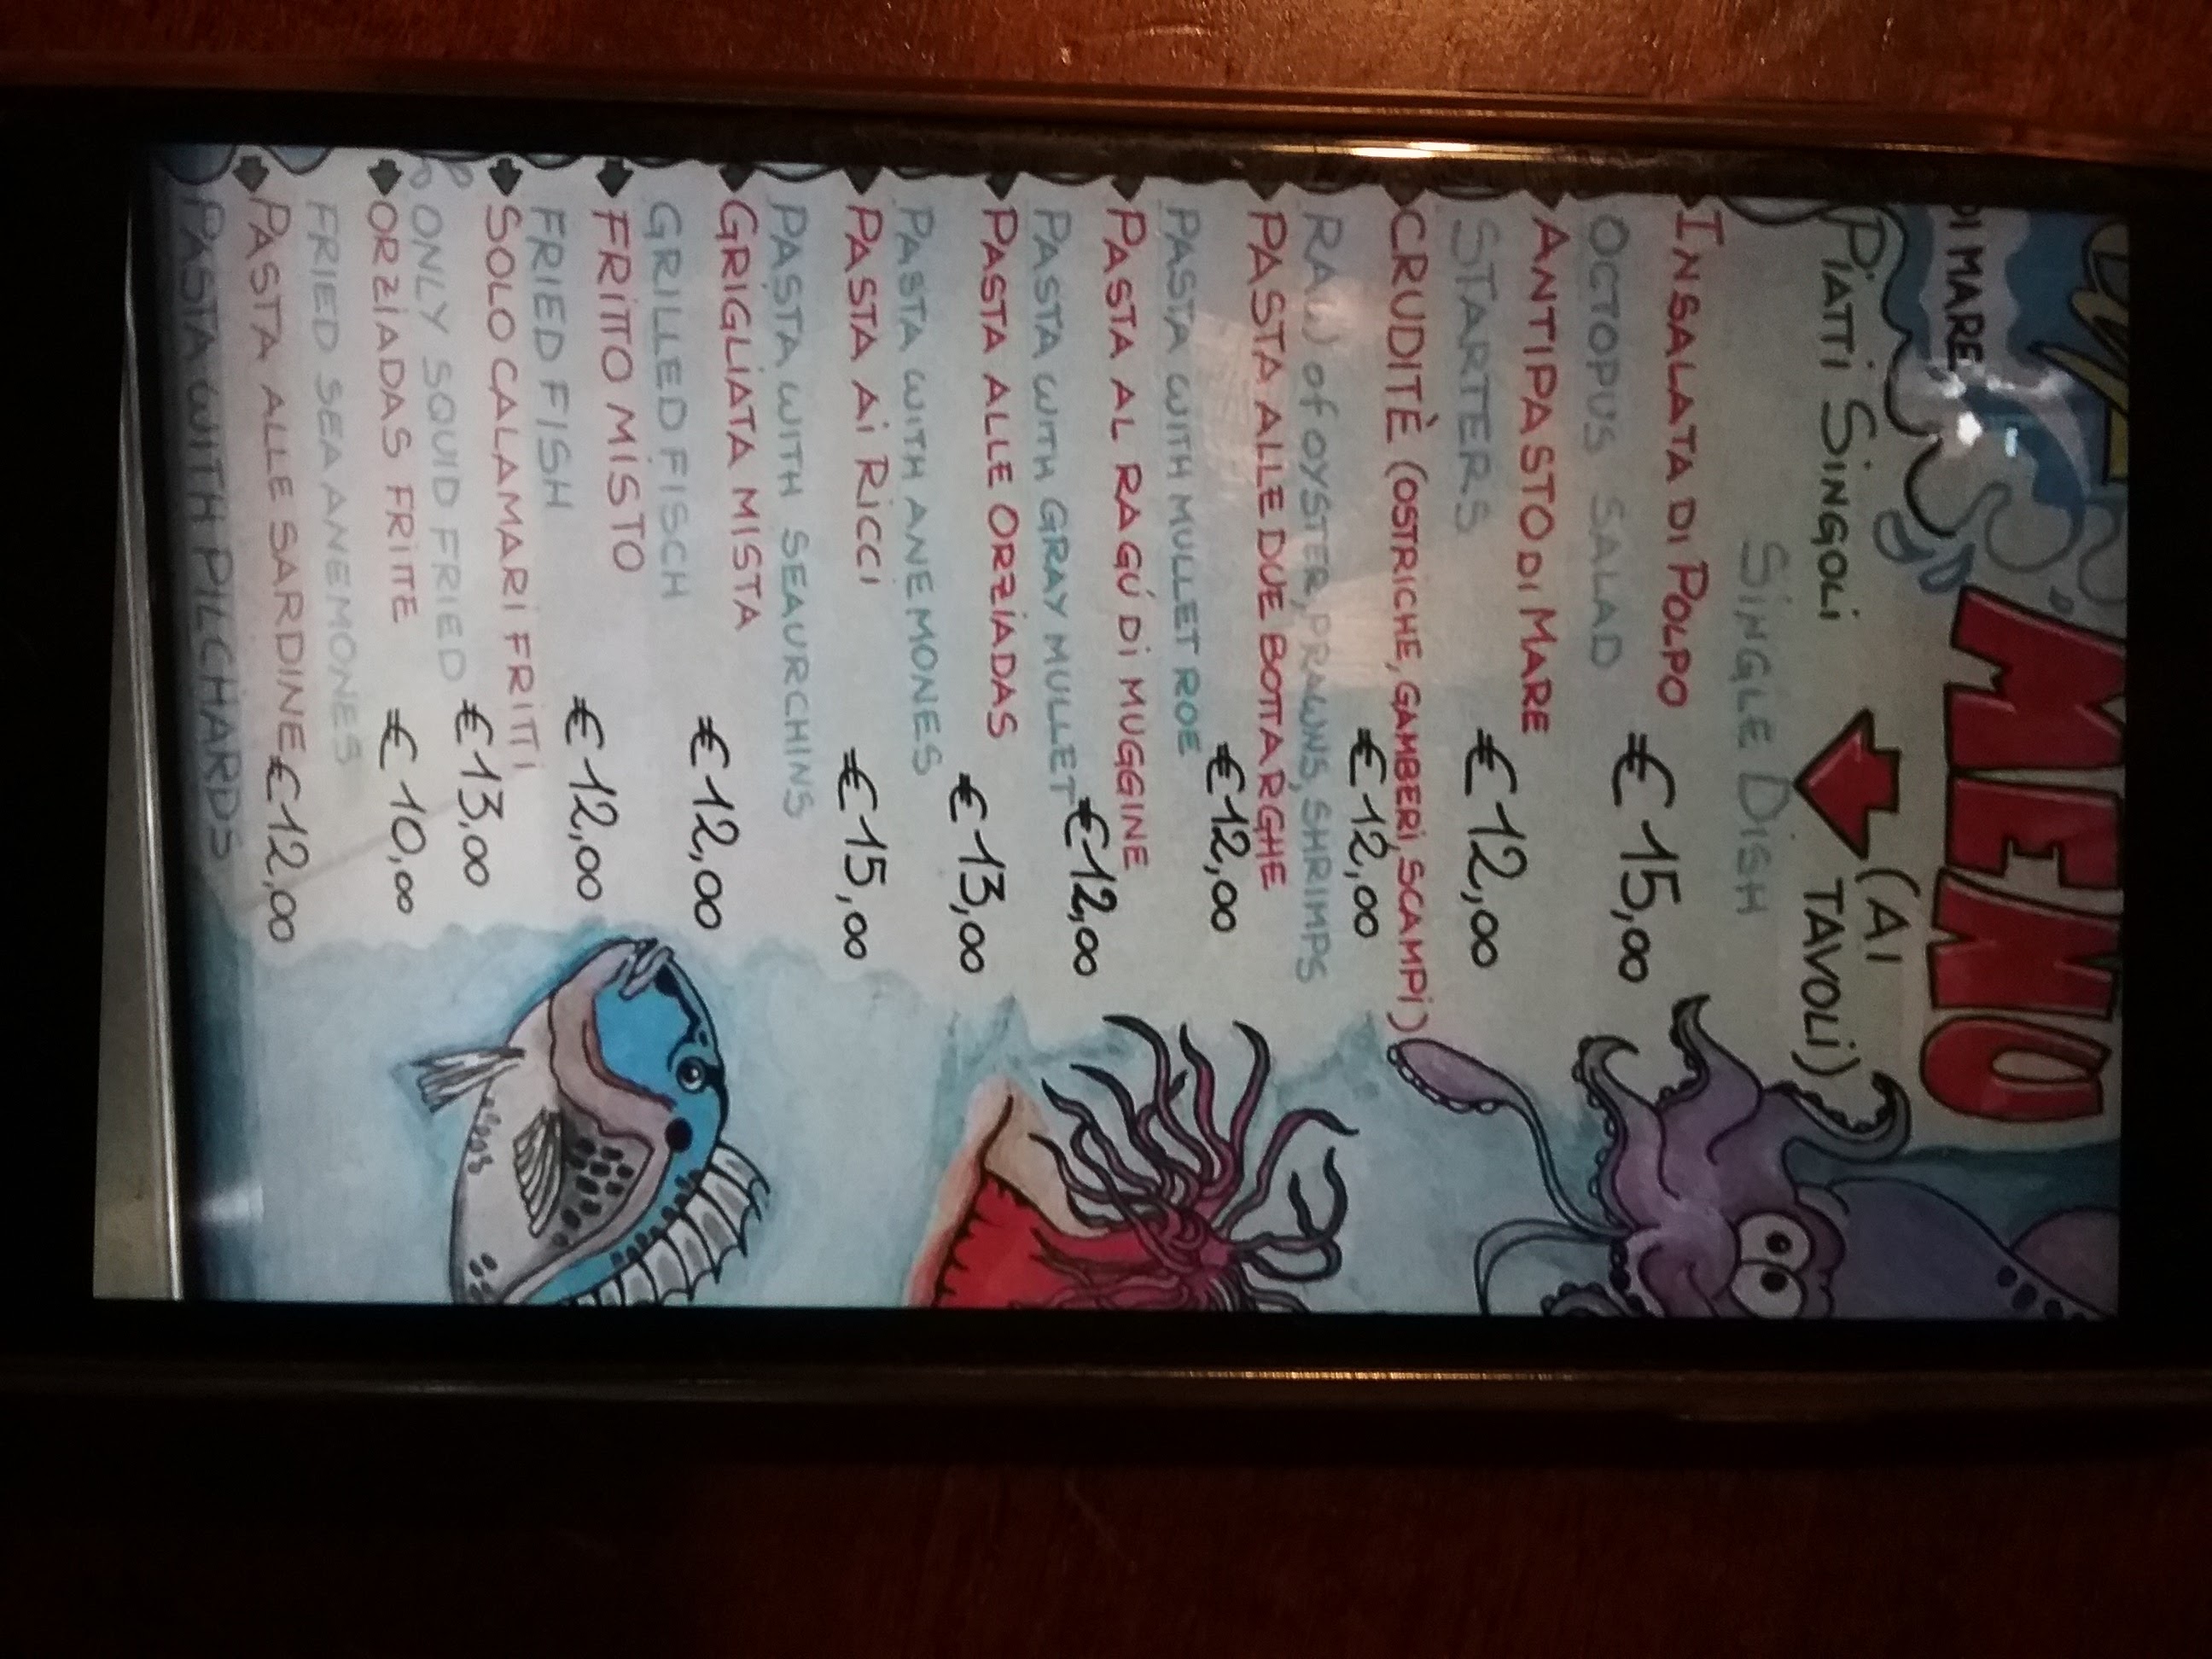 DI MARE
MENU
PiATTi SiNGOLi
(AI TAVOLi)
SiNGLE DiSH
INSALATA Di POLPO € 15,00
OCTOPU'S SALAD
ANTIPASTO Di MARE € 12,00
STARTERS
CRUDITÈ (OSTRiCHE, GAMBERi, SCAMPi) € 12,00
RAW of OYSTER, PRAWNS, SHRiMPS
PASTA ALLE DUE BOTTARGHE € 12,00
PASTA WiTH MULLET ROE
PASTA AL RAGÚ Di MUGGINE € 12,00
PASTA WiTH GRAY MULLET
PASTA ALLE ORZiADAS € 13,00
PASTA WiTH ANEMONES
PASTA Ai RiCCi € 15,00
PASTA WiTH SEAURCHINS
GRiGLiATA MiSTA € 12,00
GRiLLED FiSCH
FRiTTO MiSTO € 12,00
FRiED FiSH
SOLO CALAMARi FRiTTi € 13,00
ONLY SQUiD FRiED
ORZiADAS FRiTTE € 10,00
FRiED SEA ANEMONES
PASTA ALLE SARDiNE € 12,00
PASTA WiTH PiLCHARDS